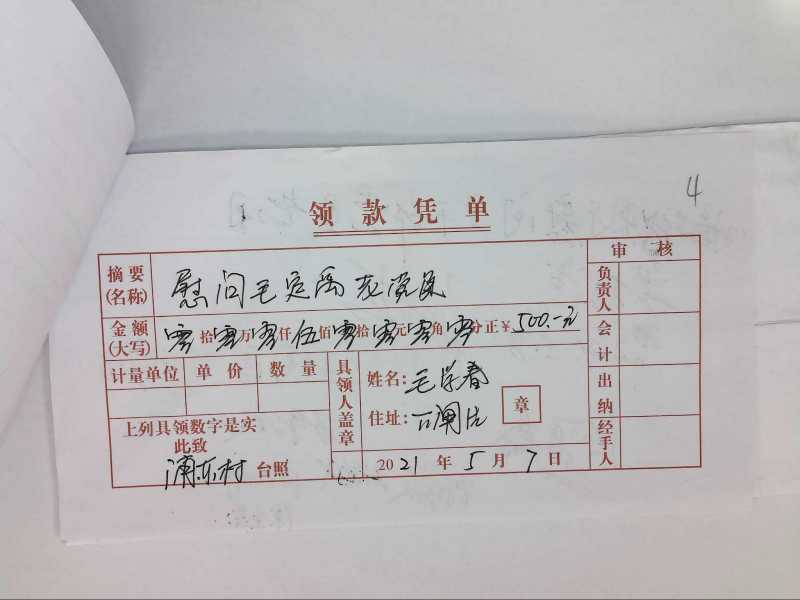 4
领款凭单
审核
摘要(名称) 慰问毛定禹老党员
负责人
金额(大写) 零拾零万零仟伍佰零拾零元零角零分正¥500.-元
会计
计量单位 单价 数量
具领人盖章
姓名:毛学春
住址:下澜片
章
出纳
上列具领数字是实
此致
浦东村 台照
2021年5月7日
经手人